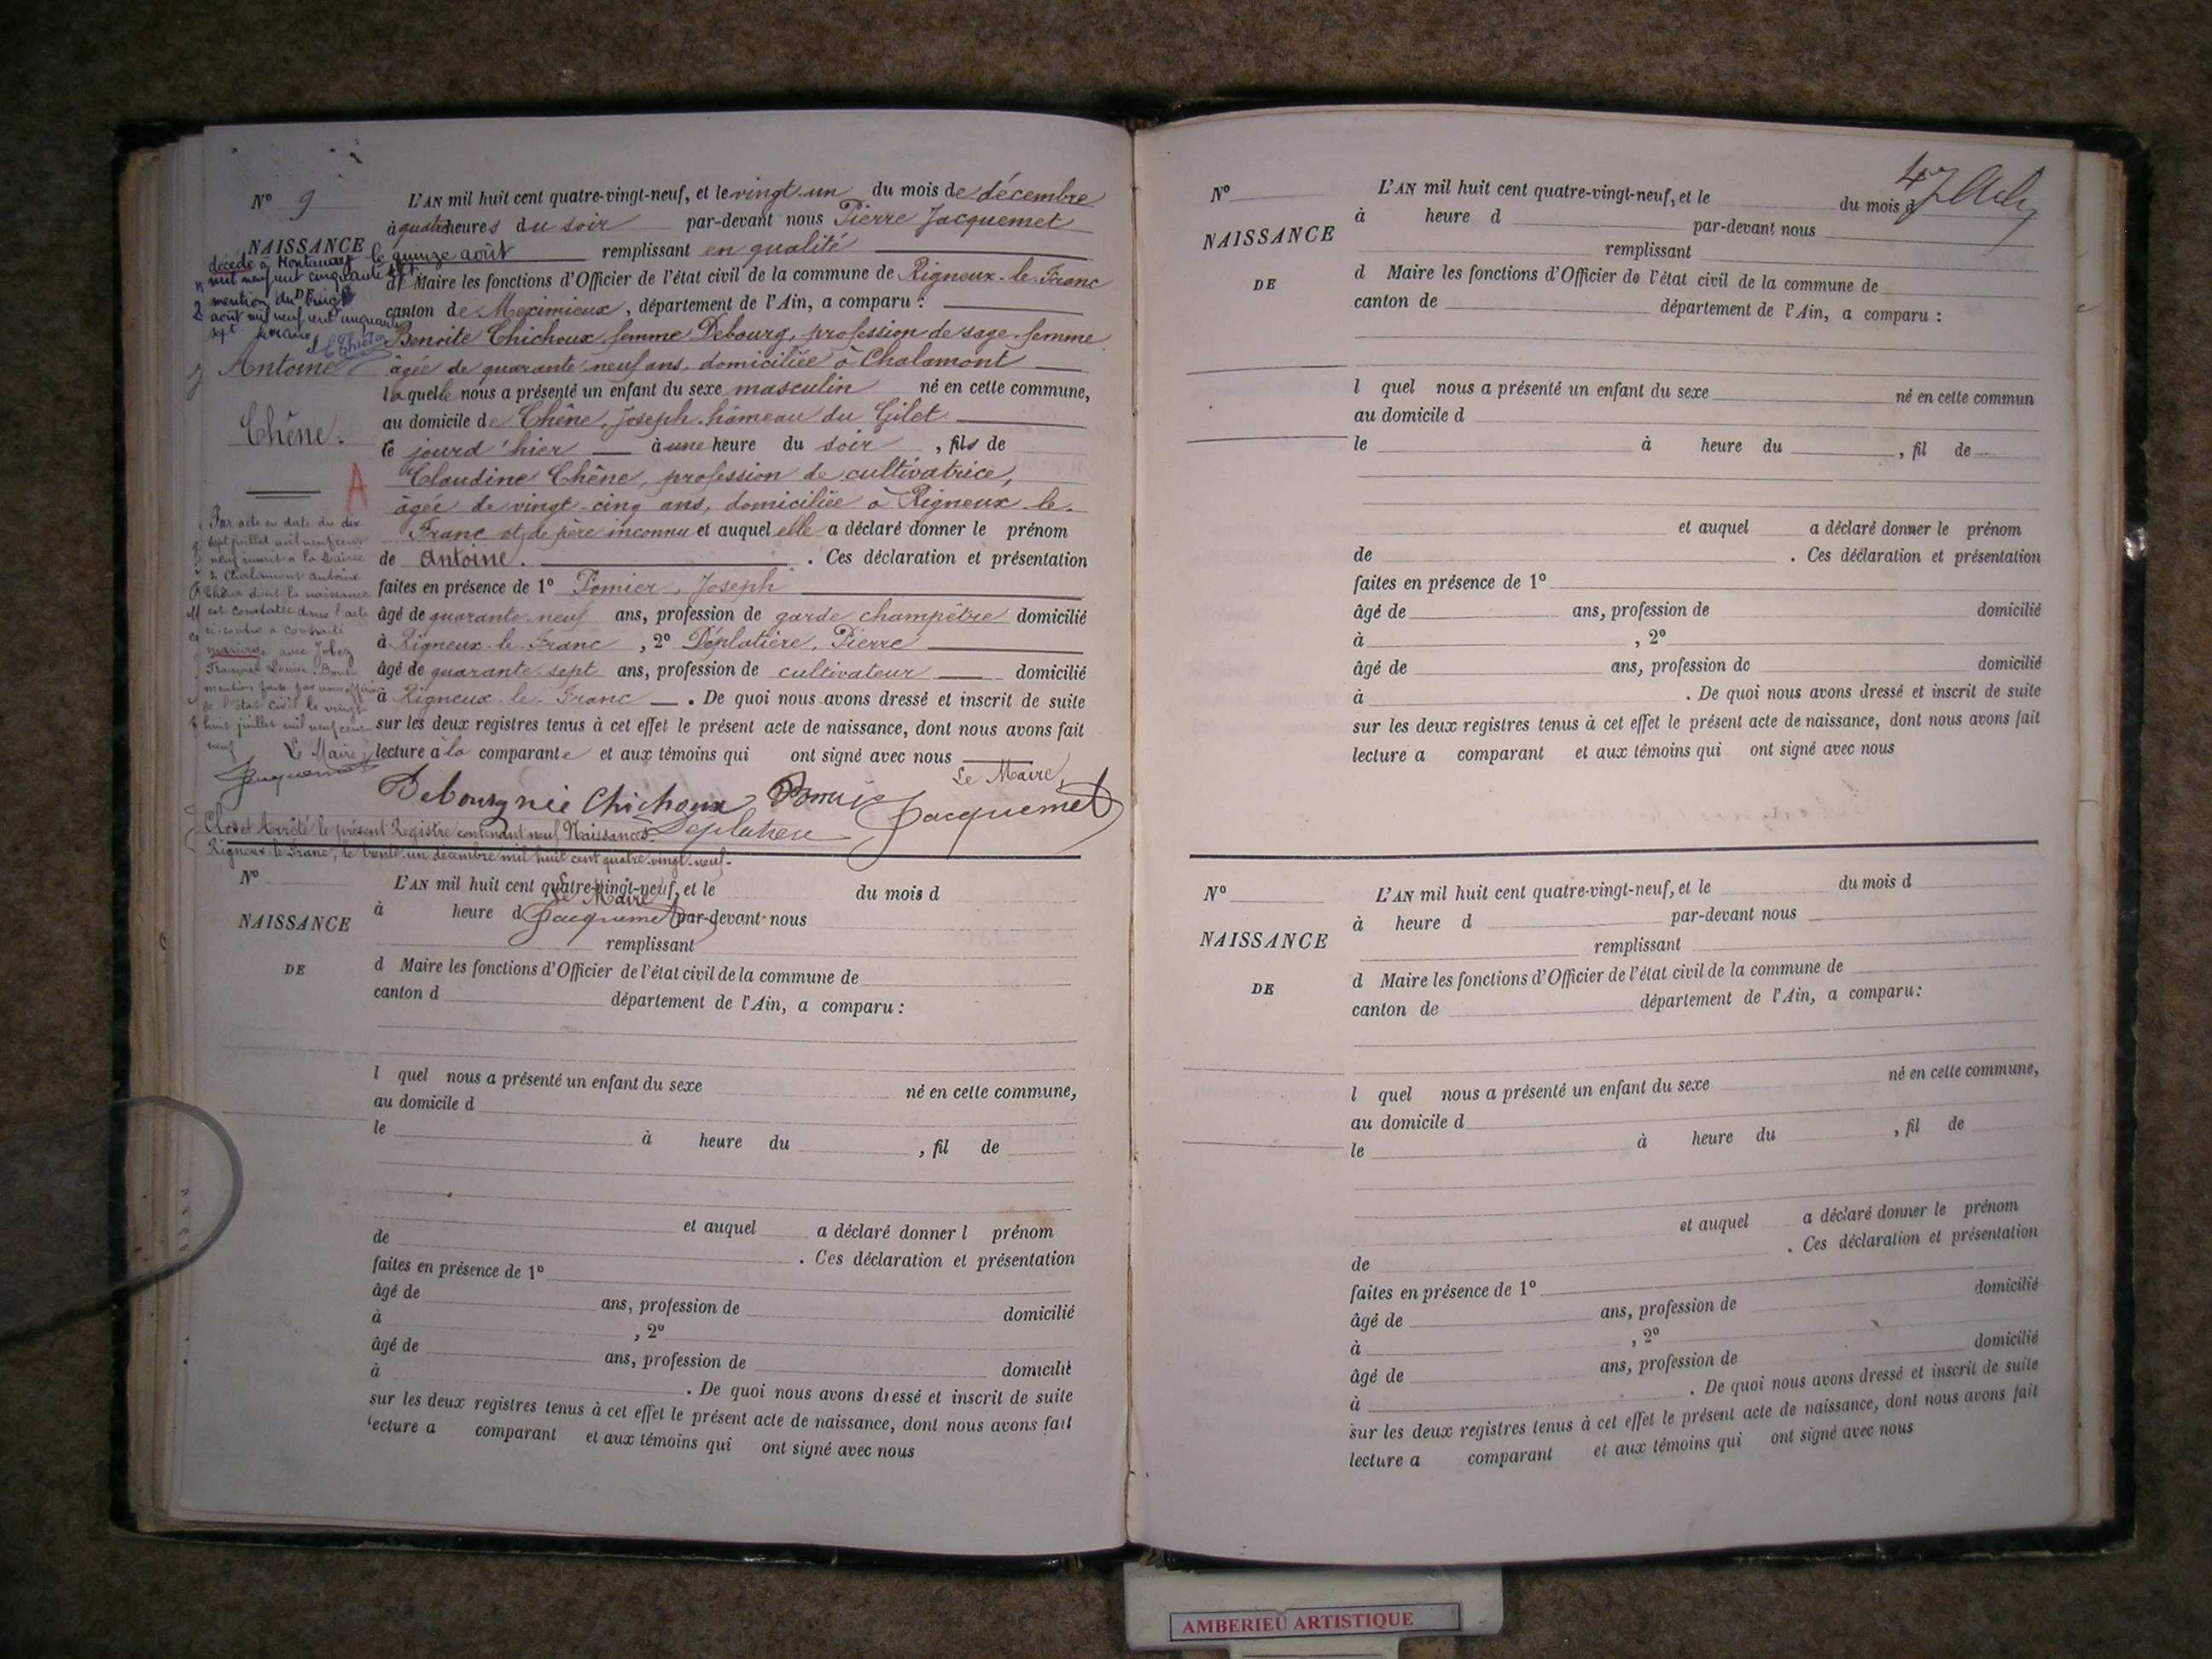 N° 9
NAISSANCE
décédé à Montanay le quinze août
mil neuf cent cinquante sept
DE
mention du vingt
août mil neuf cent cinquante
sept
Antoine
Chêne.
A
Par acte en date du dix
sept juillet mil neuf cent
neuf inscrit à la Mairie
de Chalamont Antoine
Chêne dont la naissance
est constatée dans l'acte
ci-contre a contracté
mariage avec Jobez
Françoise Louise. Dont
mention faite par nous officier
de l'état civil le vingt
huit juillet mil neuf cent
neuf
Le Maire,
Jacquemet
L'AN mil huit cent quatre-vingt-neuf, et le vingt-un du mois de décembre
à quatre heures du soir par-devant nous Pierre Jacquemet
remplissant en qualité
de Maire les fonctions d'Officier de l'état civil de la commune de Rigneux-le-Franc
canton de Meximieux, département de l'Ain, a comparu :
Benoite Chichoux femme Debourg, profession de sage-femme
âgée de quarante-neuf ans, domiciliée à Chalamont
laquelle nous a présenté un enfant du sexe masculin né en cette commune,
au domicile de Chêne, Joseph, hameau du Gilet
le jourd'hier à une heure du soir, fils de
Claudine Chêne, profession de cultivatrice,
âgée de vingt-cinq ans, domiciliée à Rigneux-le-
Franc et de père inconnu et auquel elle a déclaré donner le prénom
de Antoine. . Ces déclaration et présentation
faites en présence de 1° Pomier, Joseph
âgé de quarante-neuf ans, profession de garde champêtre domicilié
à Rigneux-le-Franc, 2° Déplatière, Pierre
âgé de quarante-sept ans, profession de cultivateur domicilié
à Rigneux-le-Franc . De quoi nous avons dressé et inscrit de suite
sur les deux registres tenus à cet effet le présent acte de naissance, dont nous avons fait
lecture a la comparante et aux témoins qui ont signé avec nous
Le Maire,
Debourg née Chichoux Pomier Jacquemet
Déplatière
Clos et Arrêté le présent Registre contenant neuf Naissances.
Rigneux-le-Franc, le trente-un décembre mil huit cent quatre-vingt-neuf.
Le Maire
Jacquemet
N°
NAISSANCE
DE
L'AN mil huit cent quatre-vingt-neuf, et le du mois d
à heure d par-devant nous
remplissant
d Maire les fonctions d'Officier de l'état civil de la commune de
canton d département de l'Ain, a comparu :
l quel nous a présenté un enfant du sexe né en cette commune,
au domicile d
le à heure du , fil de
et auquel a déclaré donner l prénom
de . Ces déclaration et présentation
faites en présence de 1°
âgé de ans, profession de domicilié
à , 2°
âgé de ans, profession de domicilié
à . De quoi nous avons dressé et inscrit de suite
sur les deux registres tenus à cet effet le présent acte de naissance, dont nous avons fait
lecture a comparant et aux témoins qui ont signé avec nous
47
N°
NAISSANCE
DE
L'AN mil huit cent quatre-vingt-neuf, et le du mois d
à heure d par-devant nous
remplissant
d Maire les fonctions d'Officier de l'état civil de la commune de
canton de département de l'Ain, a comparu :
l quel nous a présenté un enfant du sexe né en cette commun
au domicile d
le à heure du , fil de
et auquel a déclaré donner le prénom
de . Ces déclaration et présentation
faites en présence de 1°
âgé de ans, profession de domicilié
à , 2°
âgé de ans, profession de domicilié
à . De quoi nous avons dressé et inscrit de suite
sur les deux registres tenus à cet effet le présent acte de naissance, dont nous avons fait
lecture a comparant et aux témoins qui ont signé avec nous
N°
NAISSANCE
DE
L'AN mil huit cent quatre-vingt-neuf, et le du mois d
à heure d par-devant nous
remplissant
d Maire les fonctions d'Officier de l'état civil de la commune de
canton de département de l'Ain, a comparu :
l quel nous a présenté un enfant du sexe né en cette commune,
au domicile d
le à heure du , fil de
et auquel a déclaré donner le prénom
de . Ces déclaration et présentation
faites en présence de 1°
âgé de ans, profession de domicilié
à , 2°
âgé de ans, profession de domicilié
à . De quoi nous avons dressé et inscrit de suite
sur les deux registres tenus à cet effet le présent acte de naissance, dont nous avons fait
lecture a comparant et aux témoins qui ont signé avec nous
AMBERIEU ARTISTIQUE